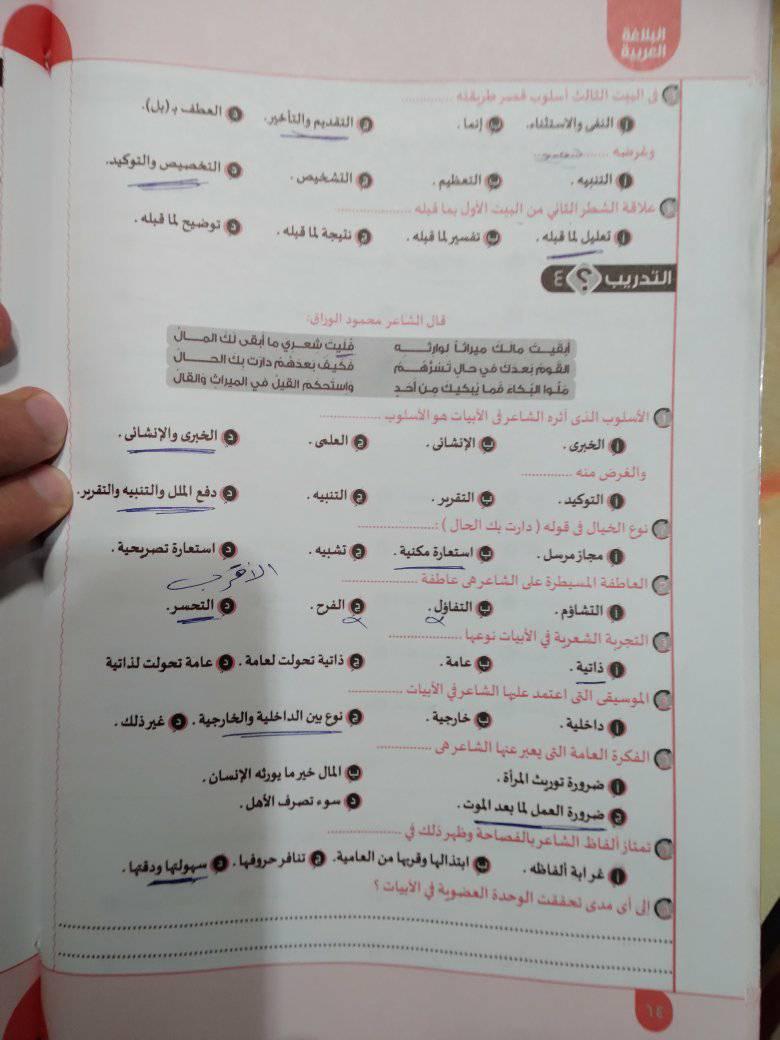 البلاغة
العربية
فى البيت الثالث أسلوب قصر طريقته ............
أ النفى والاستثناء. ب إنما. ج التقديم والتأخير. د العطف بـ (بل).
وغرضه ............
أ التنبيه. ب التعظيم. ج التشخيص. د التخصيص والتوكيد.
علاقة الشطر الثاني من البيت الأول بما قبله ............
أ تعليل لما قبله. ب تفسير لما قبله. ج نتيجة لما قبله. د توضيح لما قبله.
التدريب ؟ ٤
قال الشاعر محمود الوراق:
أبقيت مالك ميراثاً لوارثه فليت شعري ما أبقى لك المال
القوم بعدك في حال تسرهم فكيف بعدهم دارت بك الحال
ملوا البكاء فما يبكيك من أحد واستحكم القيل في الميراث والقال
١ الأسلوب الذى آثره الشاعر فى الأبيات هو الأسلوب ............
أ الخبرى. ب الإنشائى. ج العلمى. د الخبرى والإنشائى.
والغرض منه ............
أ التوكيد. ب التقرير. ج التنبيه. د دفع الملل والتنبيه والتقرير.
٢ نوع الخيال فى قوله (دارت بك الحال): ............
أ مجاز مرسل. ب استعارة مكنية. ج تشبيه. د استعارة تصريحية.
الأقرب
٣ العاطفة المسيطرة على الشاعر هى عاطفة ............
أ التشاؤم. ب التفاؤل. ج الفرح. د التحسر.
٤ التجربة الشعرية في الأبيات نوعها ............
أ ذاتية. ب عامة. ج ذاتية تحولت لعامة. د عامة تحولت لذاتية
٥ الموسيقى التى اعتمد عليها الشاعر في الأبيات ............
أ داخلية. ب خارجية. ج نوع بين الداخلية والخارجية. د غير ذلك.
٦ الفكرة العامة التى يعبر عنها الشاعر هى ............
أ ضرورة توريث المرأة. ب المال خير ما يورثه الإنسان.
ج ضرورة العمل لما بعد الموت. د سوء تصرف الأهل.
٧ تمتاز ألفاظ الشاعر بالفصاحة وظهر ذلك في ............
أ غرابة ألفاظه. ب ابتذالها وقربها من العامية. ج تنافر حروفها. د سهولتها ودقتها.
٨ إلى أى مدى تحققت الوحدة العضوية في الأبيات ؟
٦٤